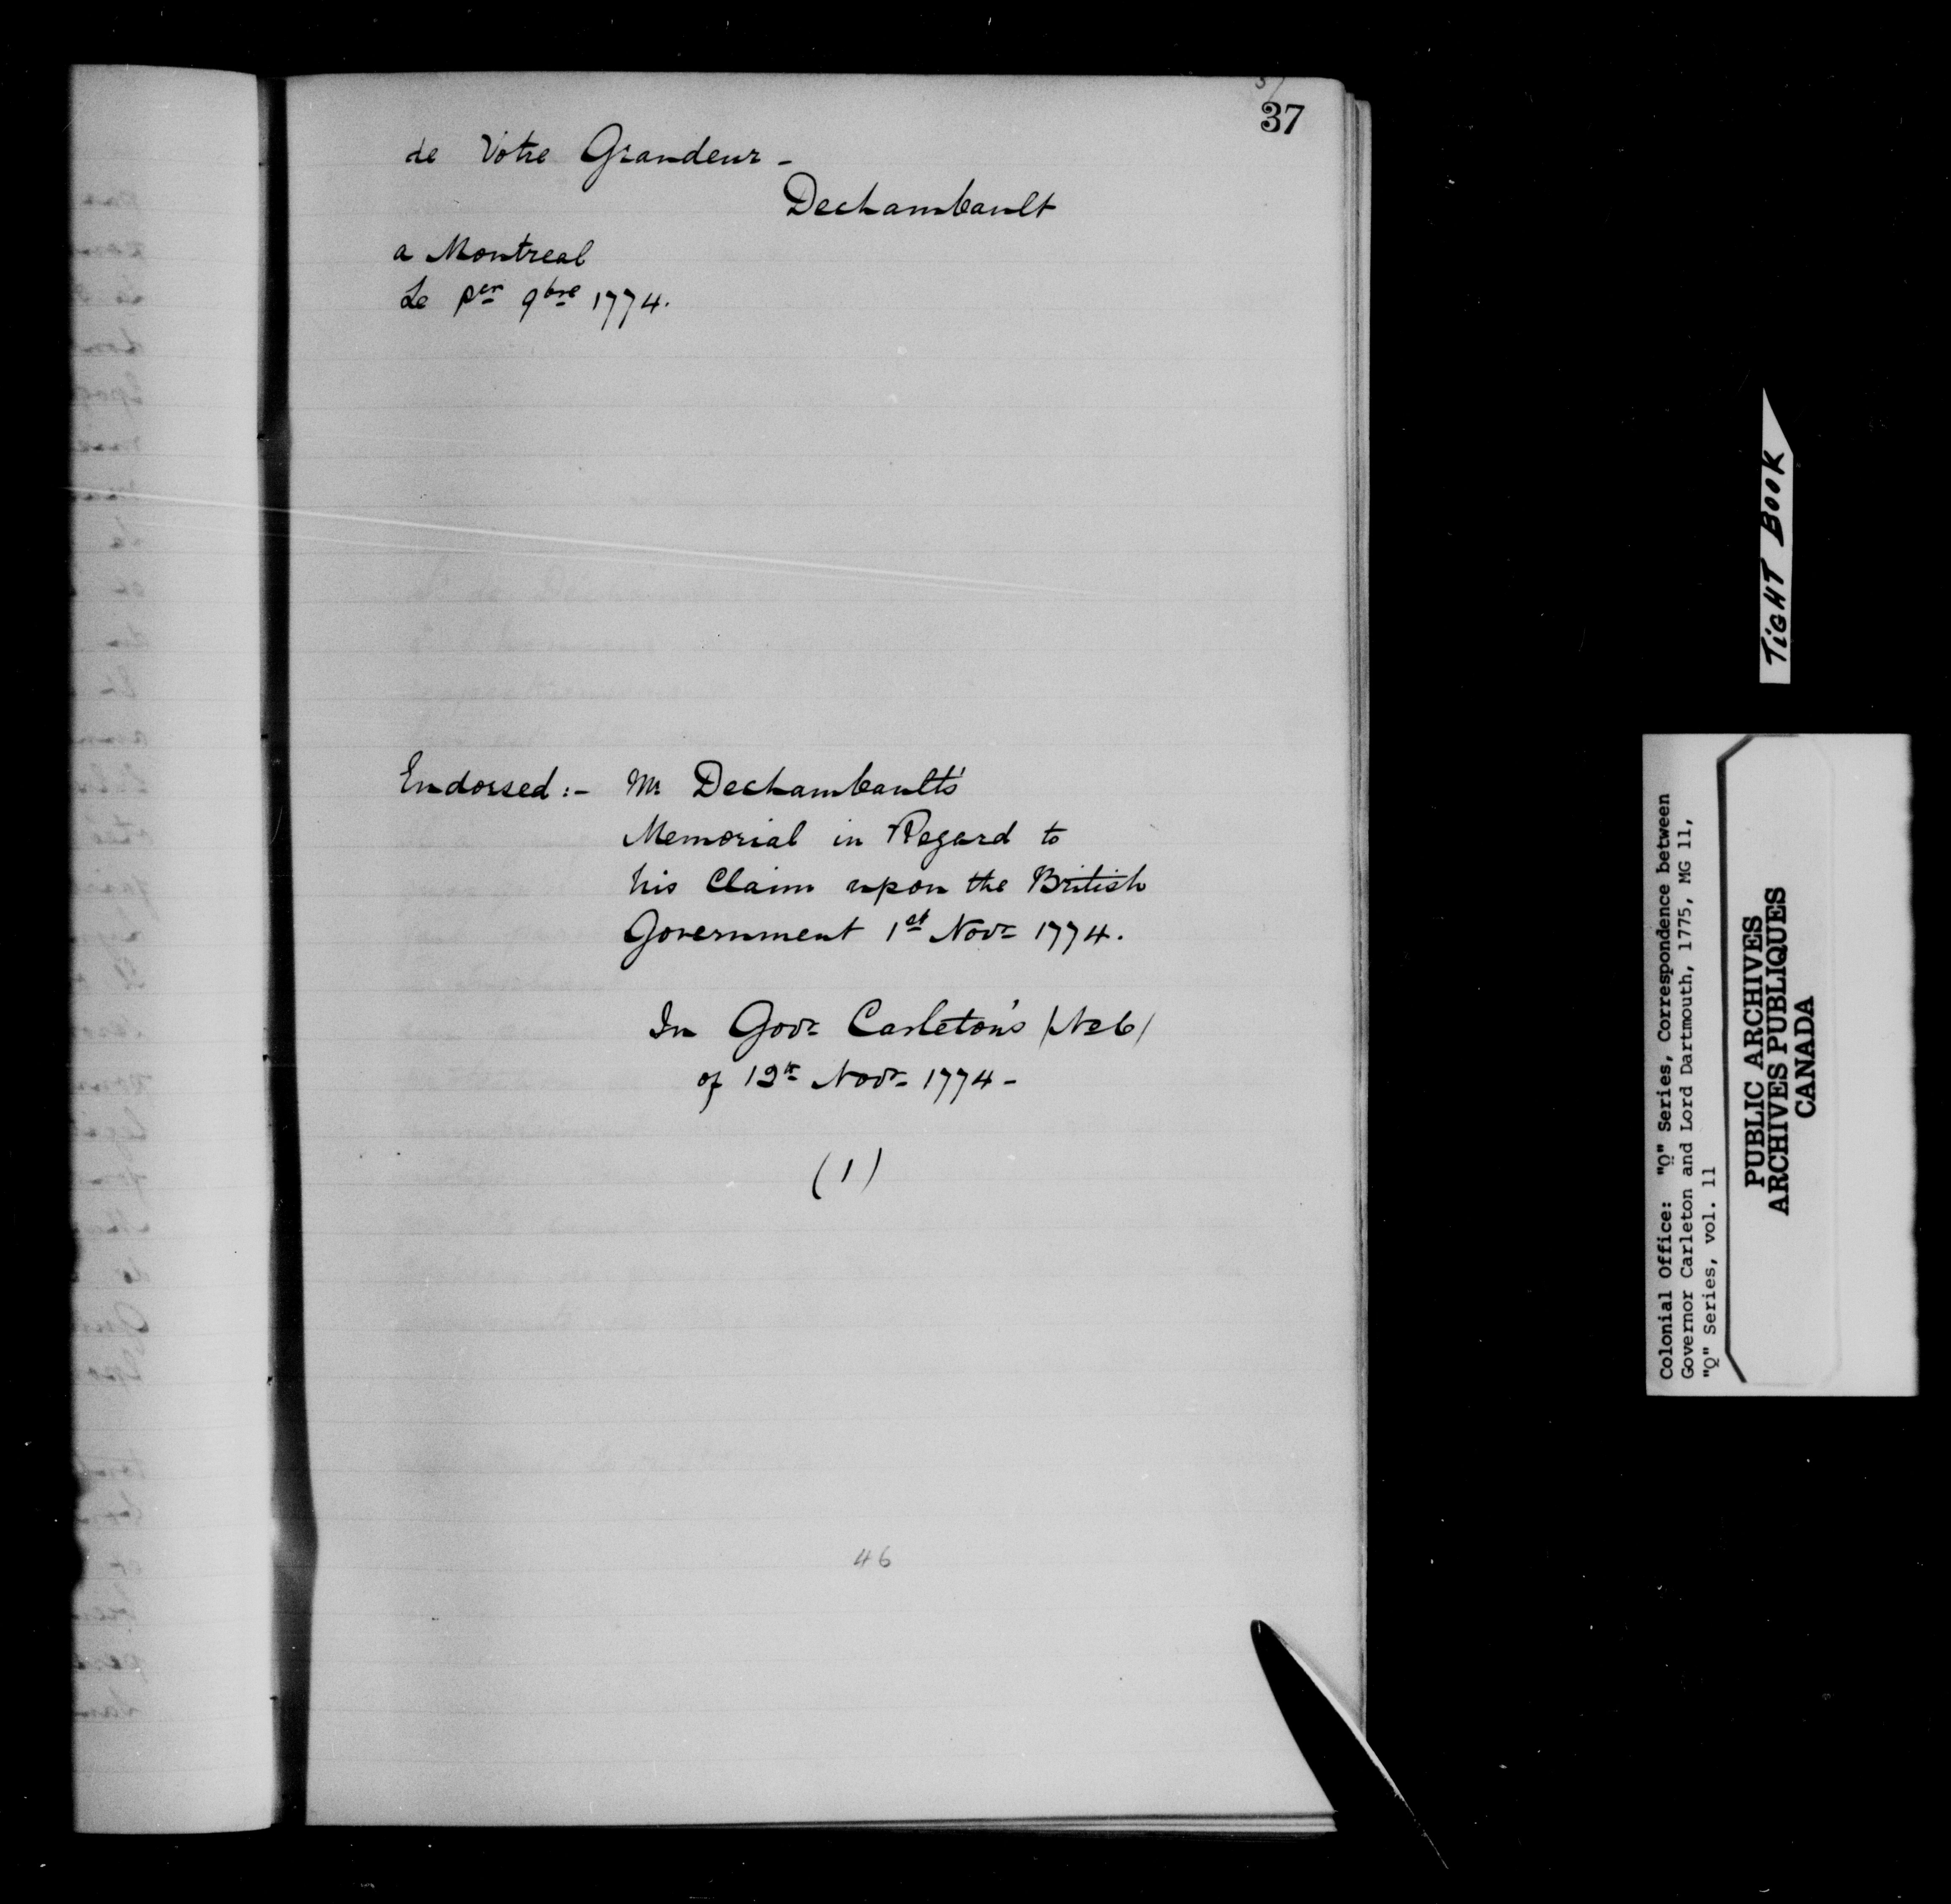 37
de Votre Grandeur -
Dechambault
a Montreal
Le per 9bre 1774.
Endorsed :- Mr Dechambault's
Memorial in Regard to
his Claim upon the British
Government 1st Novr 1774.
In Govr Carleton's (No 6)
of 12th Novr 1774 -
(1)
46
TiGHT BOOK
Colonial Office: "Q" Series, Correspondence between
Governor Carleton and Lord Dartmouth, 1775, MG 11,
"Q" Series, vol. 11
PUBLIC ARCHIVES
ARCHIVES PUBLIQUES
CANADA